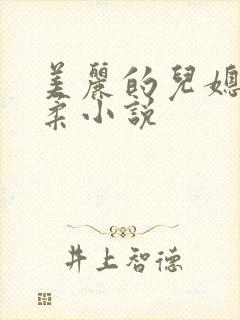 美麗的兒媳
柔小説
井上智德